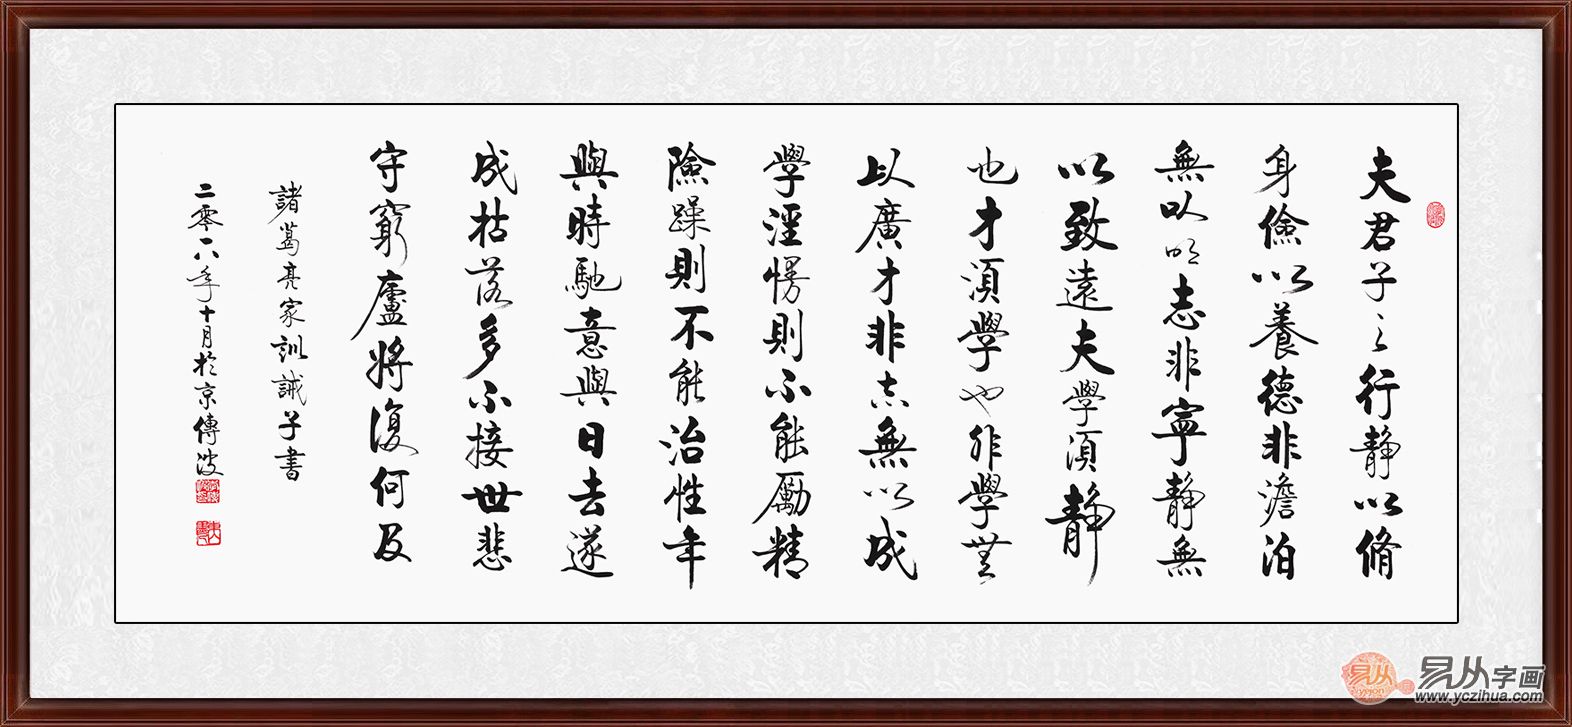 夫君子之行静以脩
身儉以養德非澹泊
無以明志非寧静無
以致遠夫學須静
也才須學也非學無
以廣才非志無以成
學淫慢則不能勵精
險躁則不能治性年
與時馳意與日去遂
成枯落多不接世悲
守窮廬將復何及
諸葛亮家訓誡子書
二零一八年十月於京傳波
易从
易从字画
www.yczihua.com